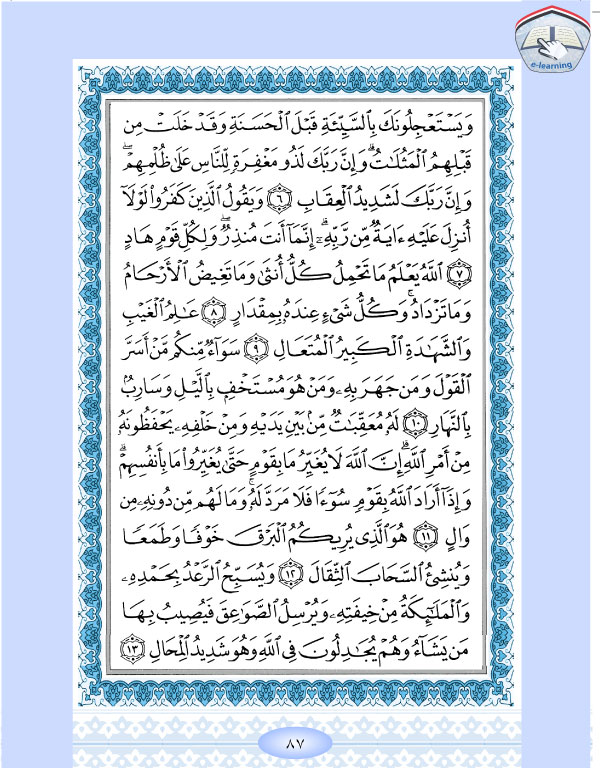 e-learning
وَيَسْتَعْجِلُونَكَ بِٱلسَّيِّئَةِ قَبْلَ ٱلْحَسَنَةِ وَقَدْ خَلَتْ مِن
قَبْلِهِمُ ٱلْمَثُلَٰتُ ۗ وَإِنَّ رَبَّكَ لَذُو مَغْفِرَةٍ لِّلنَّاسِ عَلَىٰ ظُلْمِهِمْ ۖ
وَإِنَّ رَبَّكَ لَشَدِيدُ ٱلْعِقَابِ ٦ وَيَقُولُ ٱلَّذِينَ كَفَرُوا۟ لَوْلَآ
أُنزِلَ عَلَيْهِ ءَايَةٌ مِّن رَّبِّهِۦٓ ۗ إِنَّمَآ أَنتَ مُنذِرٌ ۖ وَلِكُلِّ قَوْمٍ هَادٍ
٧ ٱللَّهُ يَعْلَمُ مَا تَحْمِلُ كُلُّ أُنثَىٰ وَمَا تَغِيضُ ٱلْأَرْحَامُ
وَمَا تَزْدَادُ ۖ وَكُلُّ شَىْءٍ عِندَهُۥ بِمِقْدَارٍ ٨ عَٰلِمُ ٱلْغَيْبِ
وَٱلشَّهَٰدَةِ ٱلْكَبِيرُ ٱلْمُتَعَالِ ٩ سَوَآءٌ مِّنكُم مَّنْ أَسَرَّ
ٱلْقَوْلَ وَمَن جَهَرَ بِهِۦ وَمَنْ هُوَ مُسْتَخْفٍۭ بِٱلَّيْلِ وَسَارِبٌۢ
بِٱلنَّهَارِ ١٠ لَهُۥ مُعَقِّبَٰتٌ مِّنۢ بَيْنِ يَدَيْهِ وَمِنْ خَلْفِهِۦ يَحْفَظُونَهُۥ
مِنْ أَمْرِ ٱللَّهِ ۗ إِنَّ ٱللَّهَ لَا يُغَيِّرُ مَا بِقَوْمٍ حَتَّىٰ يُغَيِّرُوا۟ مَا بِأَنفُسِهِمْ ۗ
وَإِذَآ أَرَادَ ٱللَّهُ بِقَوْمٍ سُوٓءًا فَلَا مَرَدَّ لَهُۥ ۚ وَمَا لَهُم مِّن دُونِهِۦ مِن
وَالٍ ١١ هُوَ ٱلَّذِى يُرِيكُمُ ٱلْبَرْقَ خَوْفًا وَطَمَعًا
وَيُنشِئُ ٱلسَّحَابَ ٱلثِّقَالَ ١٢ وَيُسَبِّحُ ٱلرَّعْدُ بِحَمْدِهِۦ
وَٱلْمَلَٰٓئِكَةُ مِنْ خِيفَتِهِۦ وَيُرْسِلُ ٱلصَّوَٰعِقَ فَيُصِيبُ بِهَا
مَن يَشَآءُ وَهُمْ يُجَٰدِلُونَ فِى ٱللَّهِ وَهُوَ شَدِيدُ ٱلْمِحَالِ ١٣
٨٧